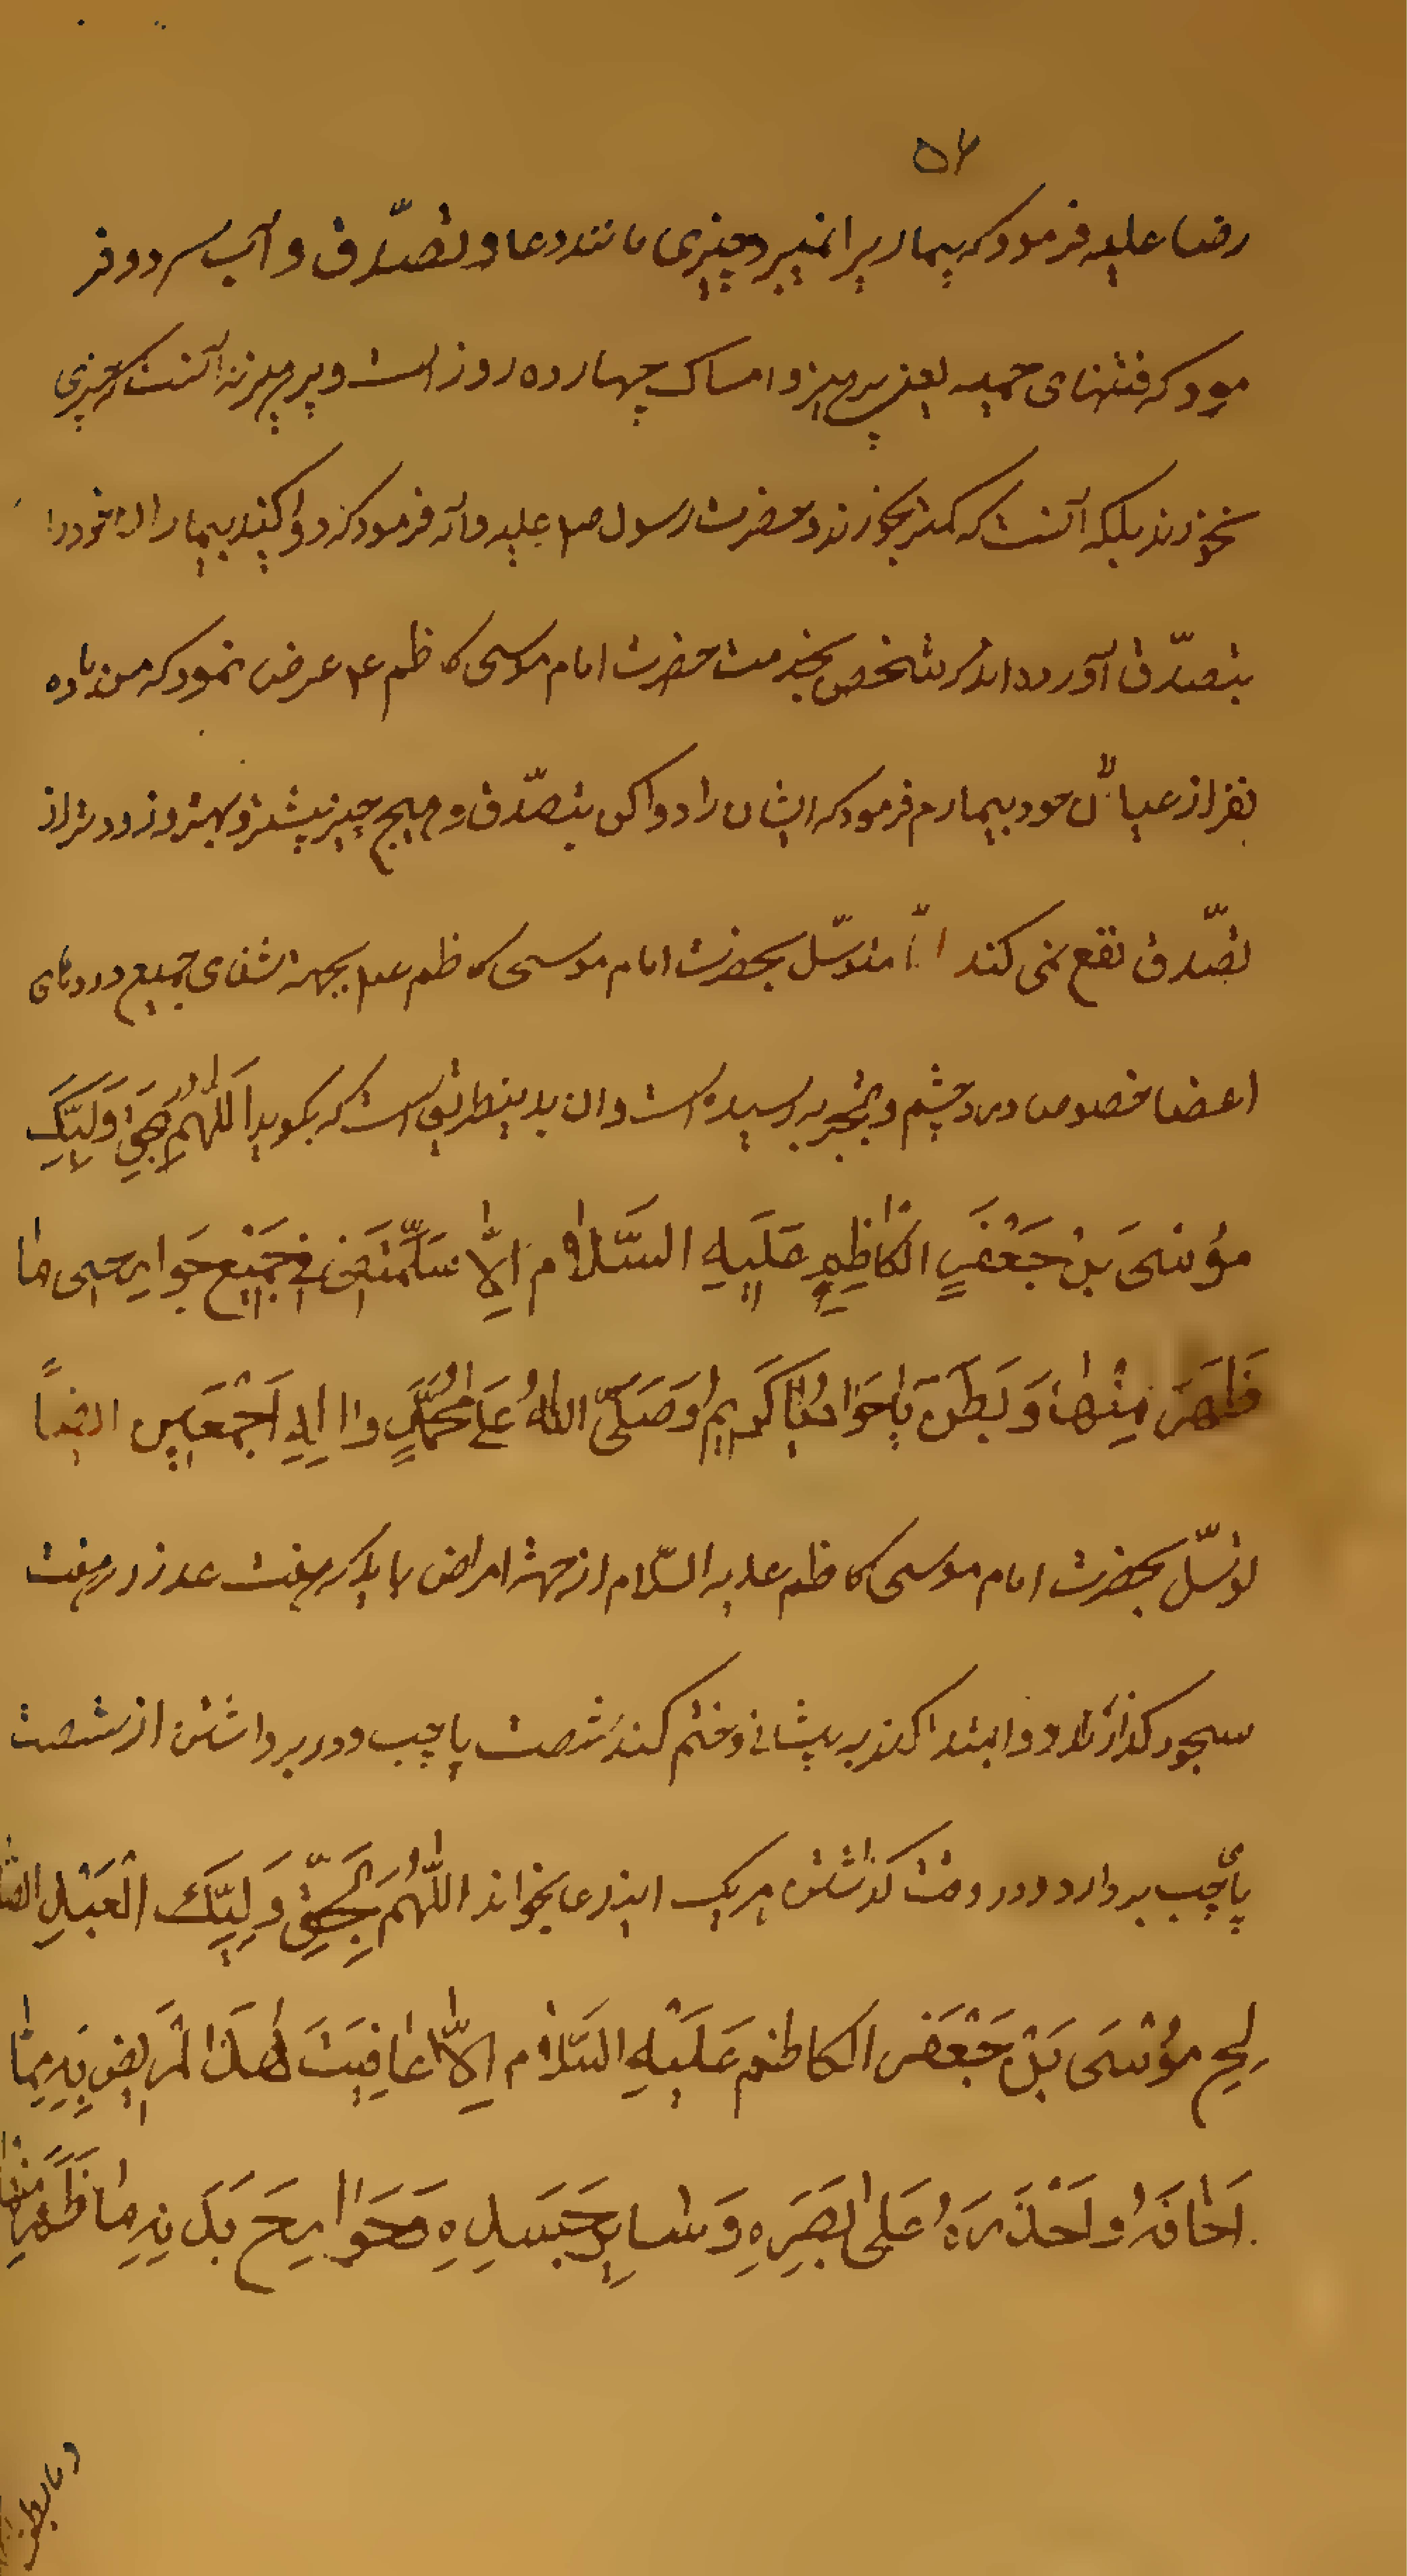 ۵۲
رضا علیه فرمود که بیمار برا نمیبرد چیزی مانند دعا و تصدّق و آب سرد و فر
مود که فتنهای حمیه یعنی پرهیز و امساک چهارده روز است و پرهیز نه آنست که چیزی
نخورند بلکه آنست که کمتر بخورند و حضرت رسول ص علیه و آله فرمود که دوا کنید بیماران خود را
بتصدّق آورده اند که شخصی بخدمت حضرت امام موسی کاظم ع عرض نمود که من با ده
نفر از عیال خود بیمارم فرمود که ایشان را دوا کن بتصدّق و هیچ چیز بیشتر و بهتر و زودتر از
تصّدق نفع نمی کند امّا متوسّل بحضرت امام موسی کاظم ع بجهة شفای جمیع دردهای
اعضا خصوص درد چشم و بتجربه رسیده است و ان بدینطریق است که بکوید اَللّٰهُمَّ بِحَقِّ وَلِیِّکَ
مُوْسٰیَ بنْ جَعْفَرٍ الکٰاظِمِ عَلَیهِ السَّلٰام اِلّٰا سَلَّمْتَنی فی جَمیْعِ جَوارِحی مٰا
ظَهَرَ مِنْهٰا وَ بَطَنَ یٰا جَوٰادُ یٰا کَریمُ وَ صَلَّی اللهُ عَلیٰ مُحَمَّدٍ وَ اٰلِهِ اَجْمَعین ایضاً
توسّل بحضرت امام موسی کاظم علیه السّلام از جهة امراض باید که هفت عدد زر هفت
سجود کذارد و ابتدا کند به پیشانی و ختم کند شصت پا چپ و در برداشتن از شصت
پای چپ بردارد و در وقت کذاشتن هریک ایندعا بخواند اللّٰهُمَّ بِحَقِّ وَلِیِّکَ الْعَبْدِ الصّٰا
لِحِ مُوْسَی بَنْ جَعْفَر الکاظم عَلَیْهِ السَّلٰام اِلّٰا عٰافَیْتَ هٰذَا الْمَریض بِهِ مِمّٰا
اَخٰافَهُ و اَحْذَرَهُ عَلیٰ بَصَرِهِ وَ سٰایِرِ جَسَدِهِ وَ جَوٰارِحَ بَدَنِهِ مٰا ظَهَرَ مِنْهٰا
و ما بطن